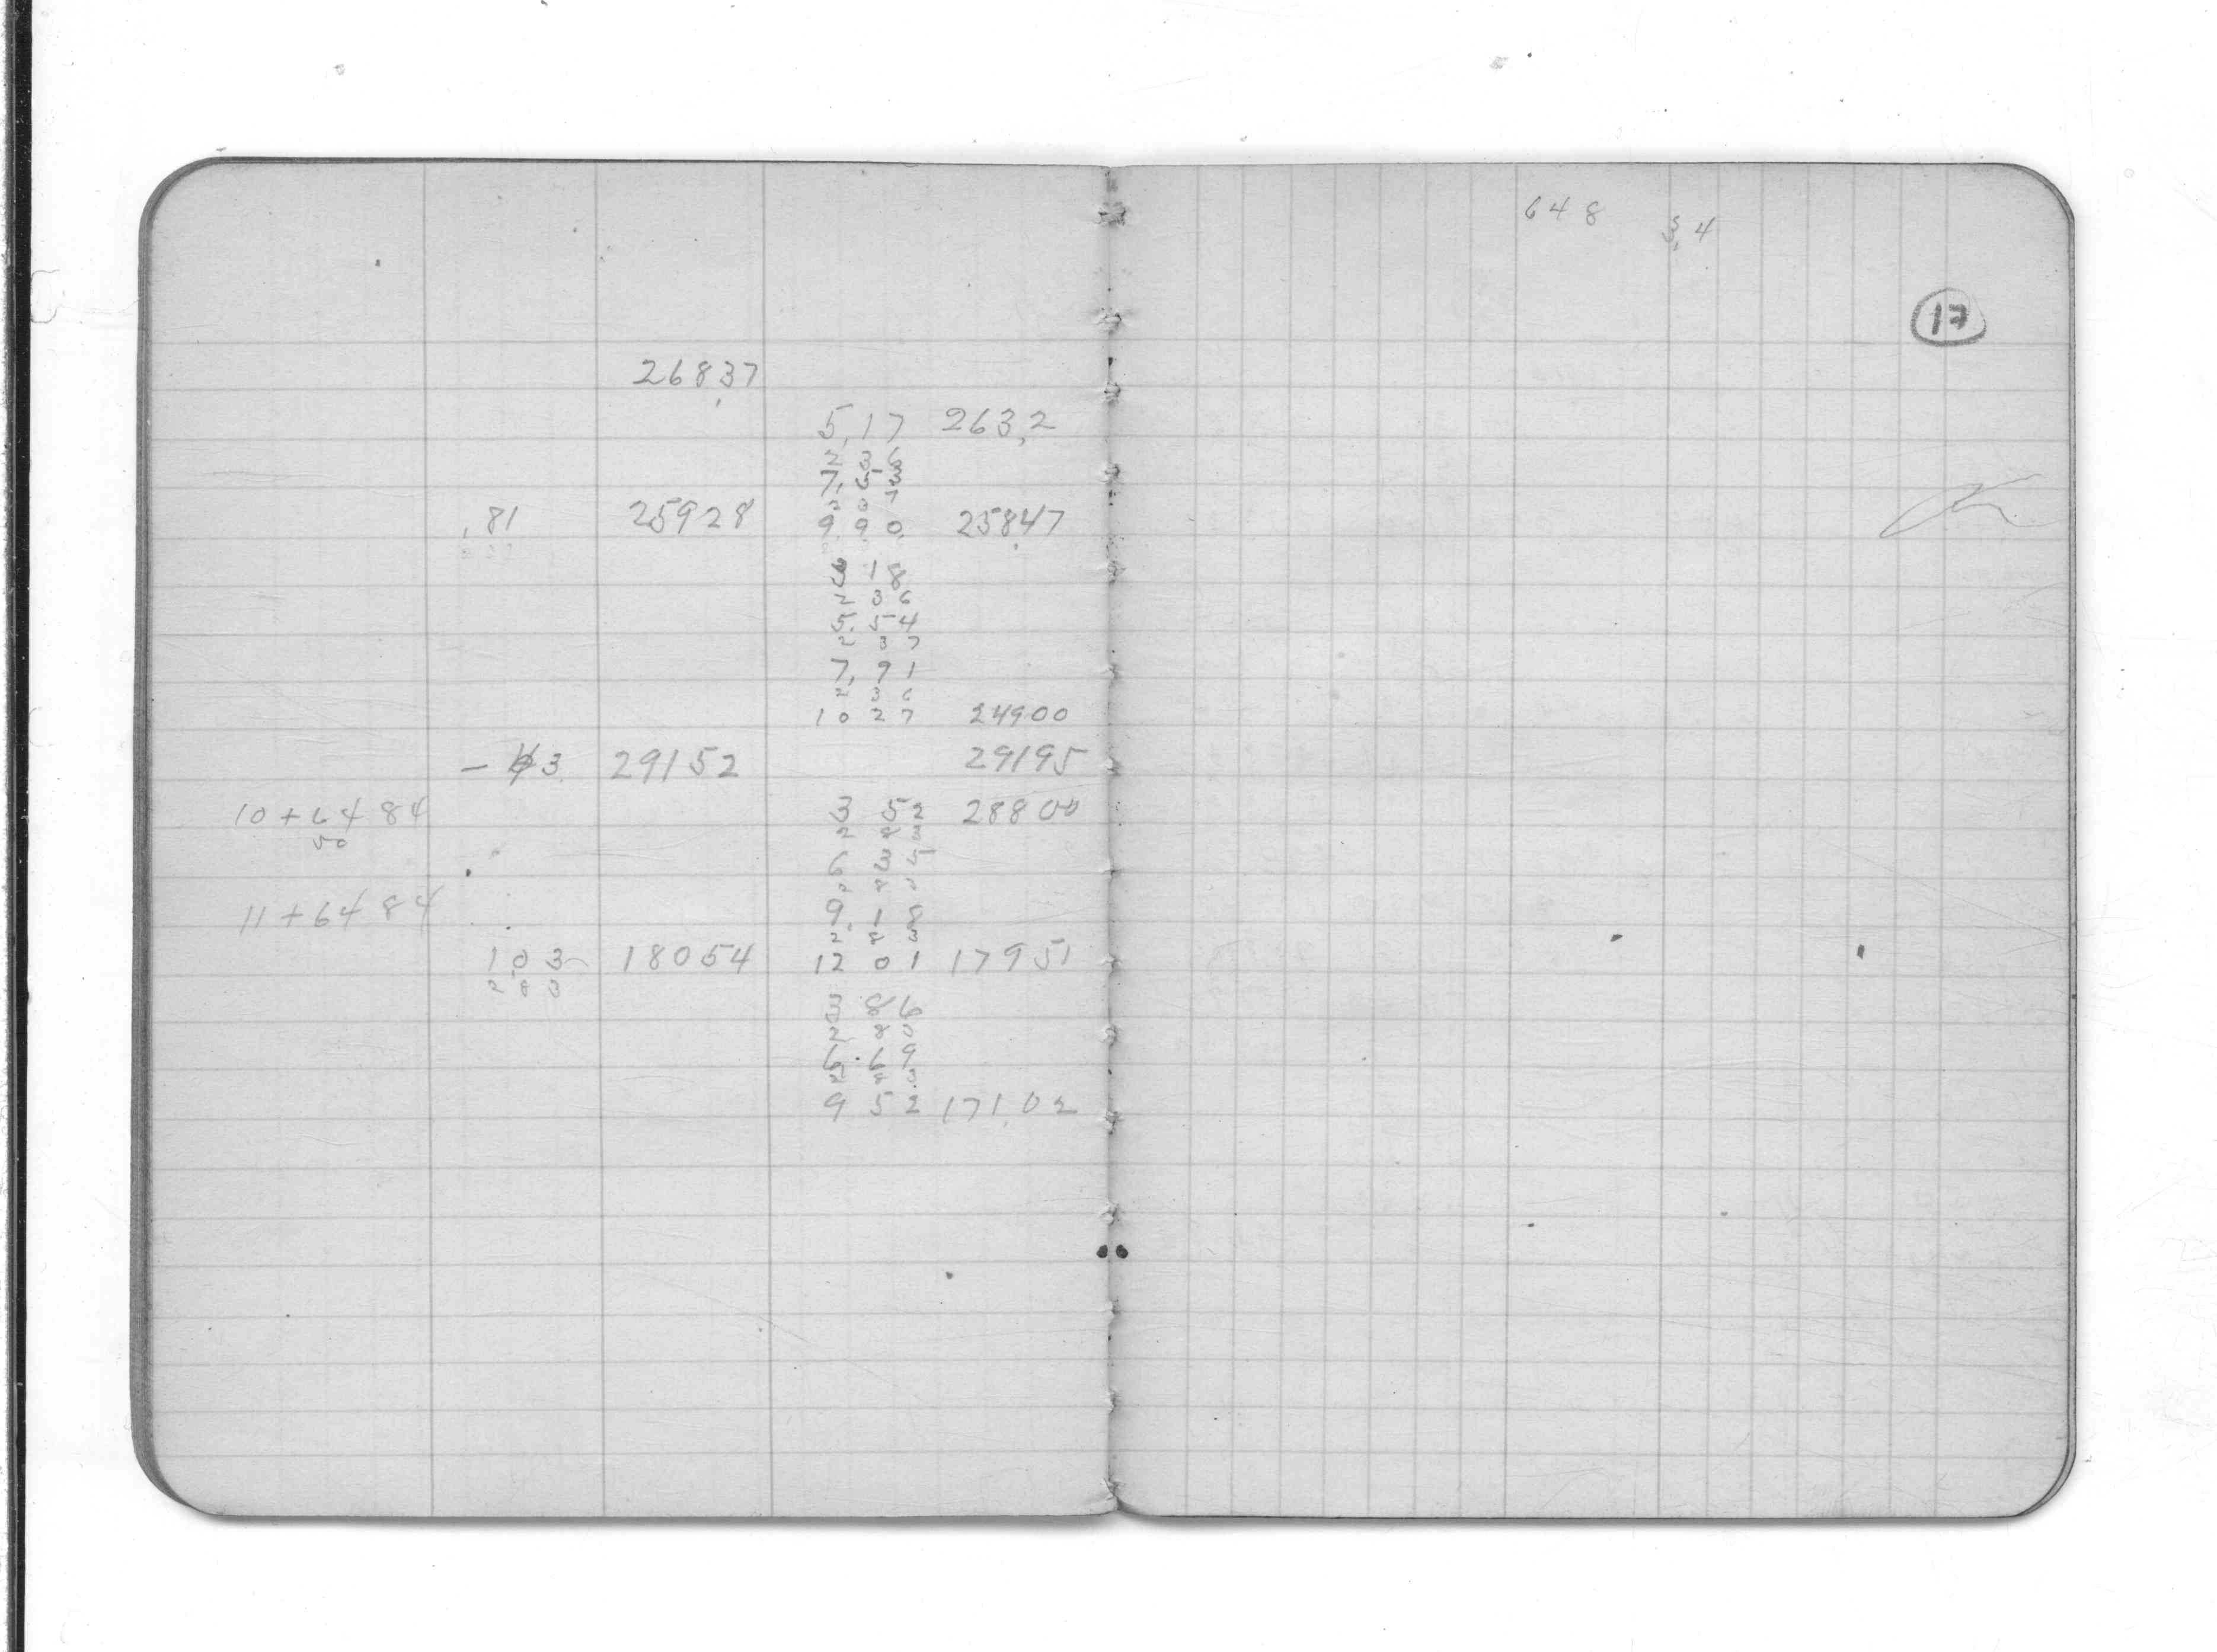 26837
5,17 263,2
2 36
7, 53
2 07
,81 25928 9 90 25847
18
2 36
5. 54
2 37
7, 91
2 36
10 27 24900
- 43 29152 29195
10 + 64 84 3 52 28800
50 2 83
6 35
11 + 64 84 9, 18
2 83
103 18054 12 01 17951
283
3 86
2 80
6.69
9 52 171,02
648
34
17